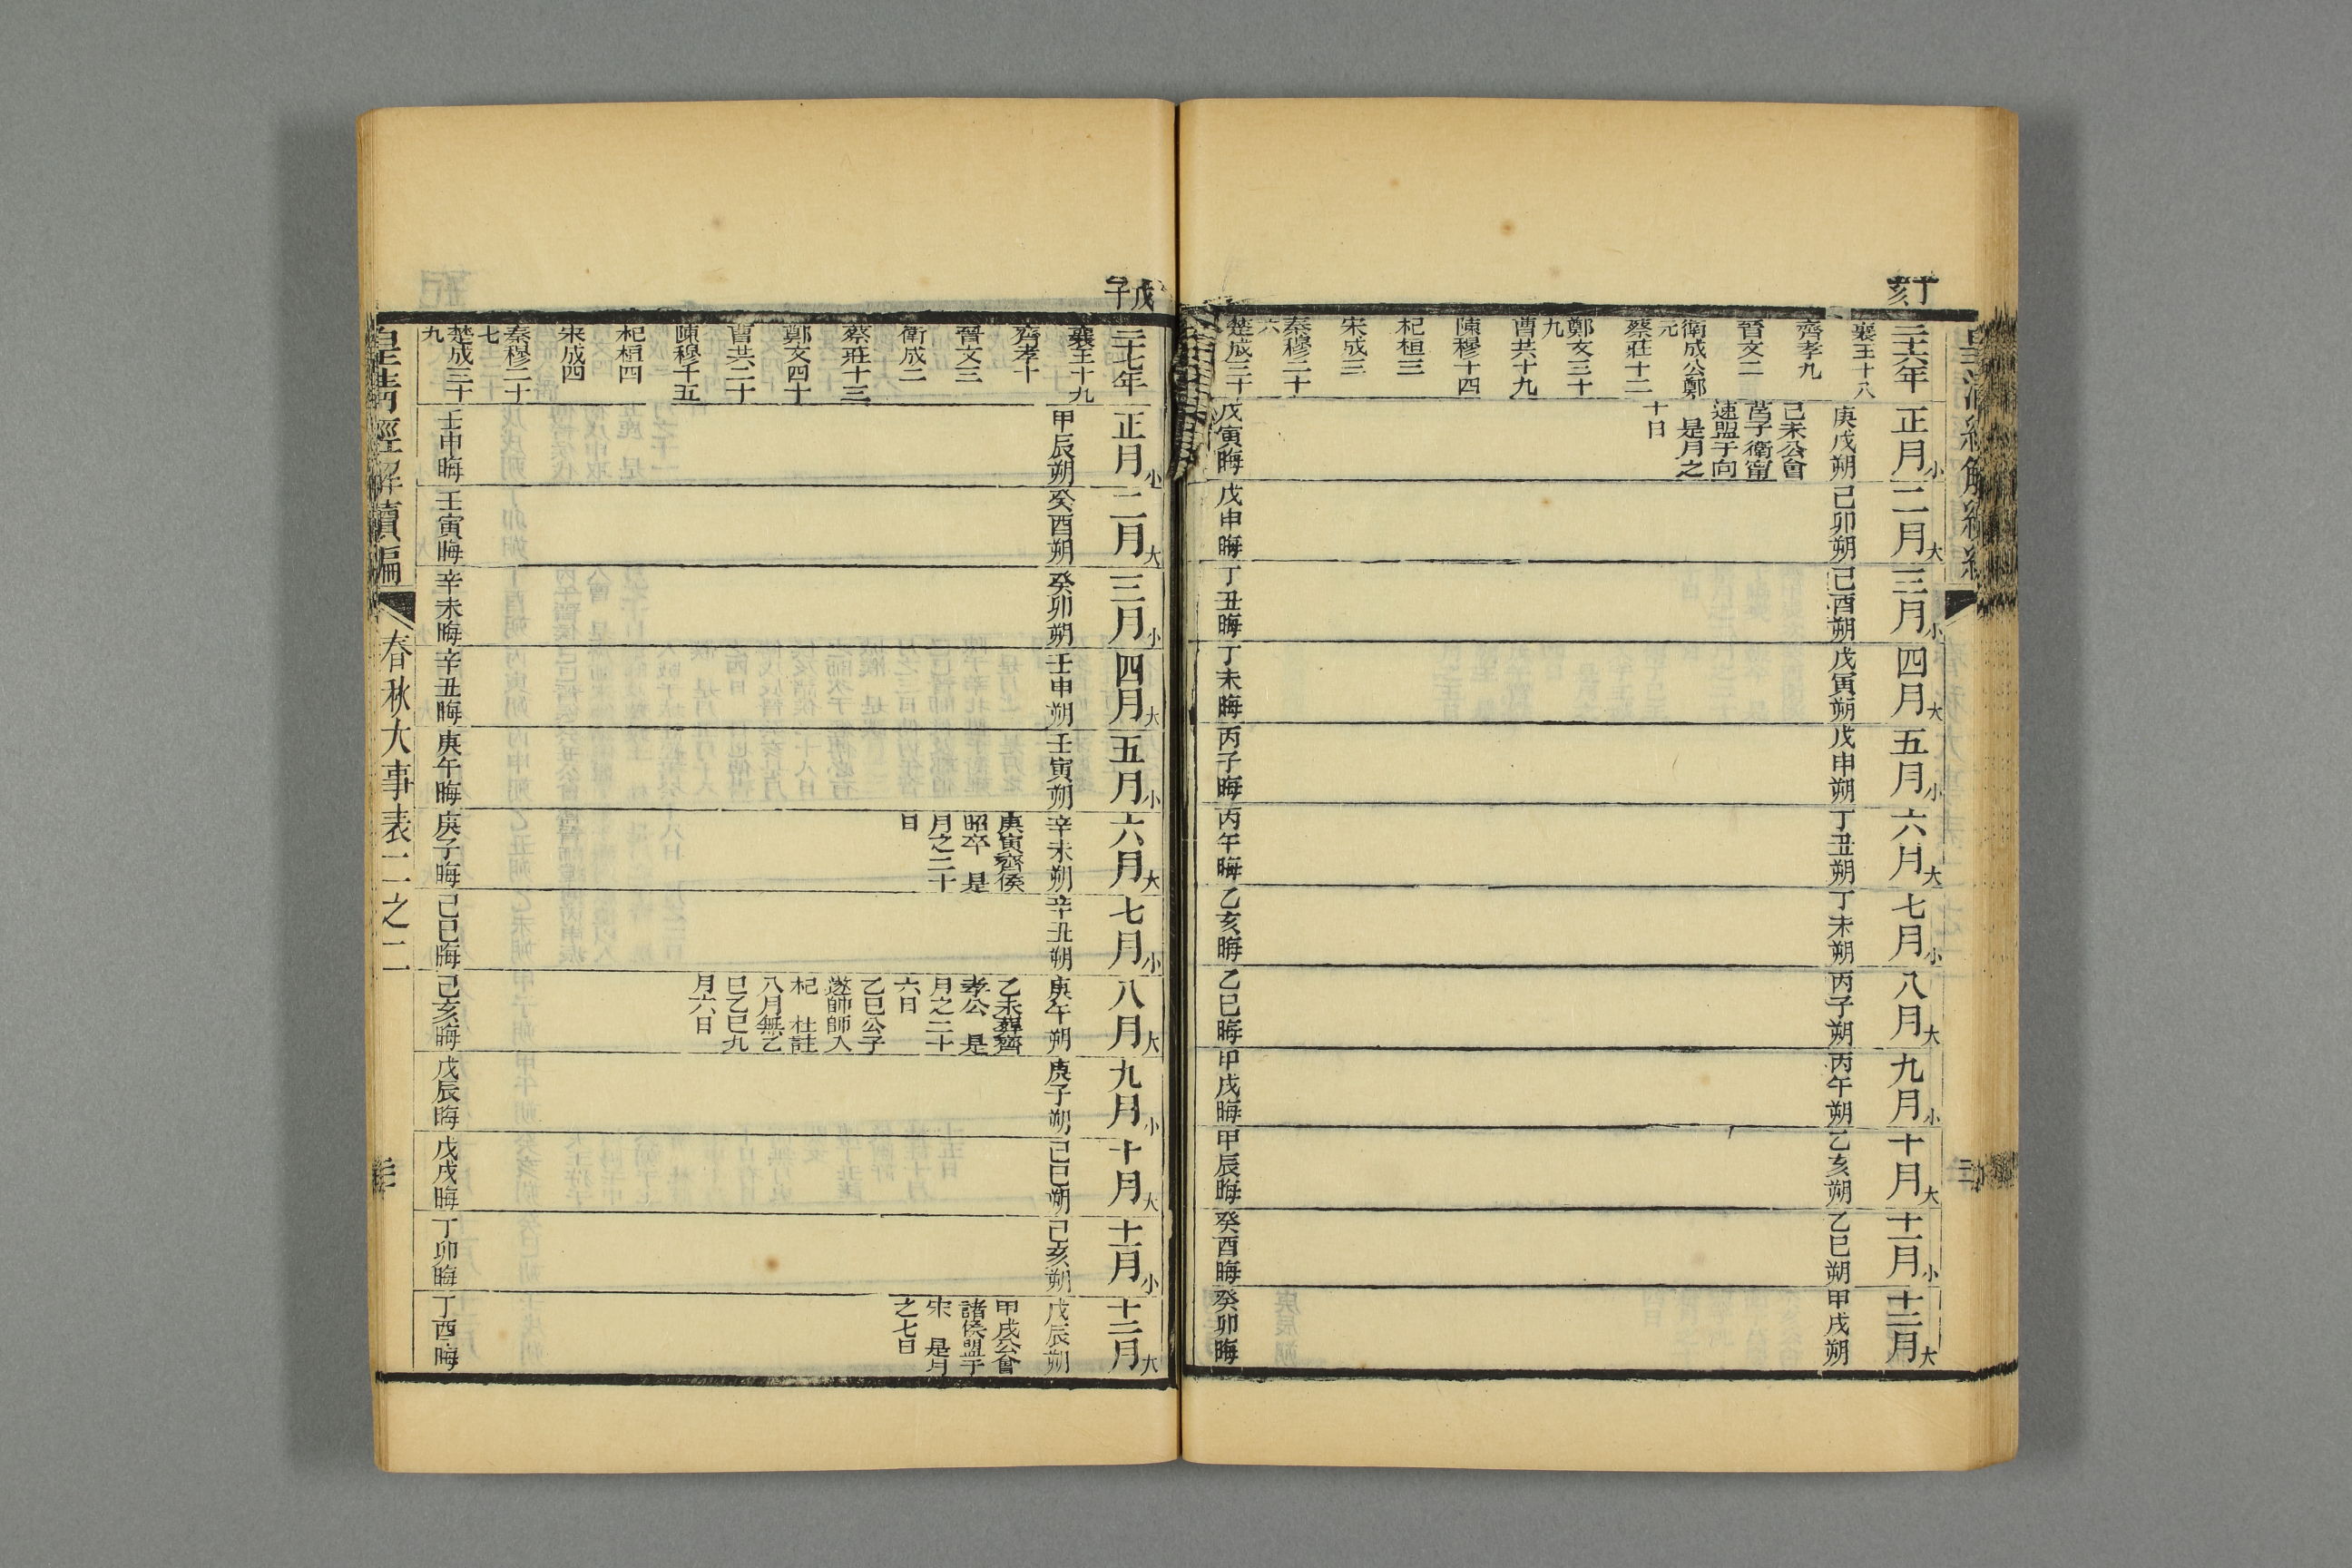 丁亥
二十六年
襄王十八
齊孝九
晉文二
衛成公鄭
元
蔡莊十二
鄭文三十
九
曹共十九
陳穆十四
杞桓三
宋成三
秦穆二十
六
楚成三十
正月小
庚戌朔
己未公會
莒子衛甯
速盟于向
是月之
十日
戊寅晦
二月大
己卯朔
戊申晦
三月小
己酉朔
丁丑晦
四月大
戊寅朔
丁未晦
五月小
戊申朔
丙子晦
六月大
丁丑朔
丙午晦
七月小
丁未朔
乙亥晦
八月大
丙子朔
乙巳晦
九月小
丙午朔
甲戌晦
十月大
乙亥朔
甲辰晦
十一月小
乙巳朔
癸酉晦
十二月大
甲戌朔
癸卯晦
戊子
二十七年
襄王十九
齊孝十
晉文三
衛成二
蔡莊十三
鄭文四十
曹共二十
陳穆十五
杞桓四
宋成四
秦穆二十
七
楚成三十
九
正月小
甲辰朔
壬申晦
二月大
癸酉朔
壬寅晦
三月小
癸卯朔
辛未晦
四月大
壬申朔
辛丑晦
五月小
壬寅朔
庚午晦
六月大
辛未朔
庚寅齊侯
昭卒 是
月之二十
日
庚子晦
七月小
辛丑朔
己巳晦
八月大
庚午朔
乙未葬齊
孝公 是
月之二十
六日
乙巳公子
遂帥師入
杞 杜註
八月無乙
巳乙巳九
月六日
己亥晦
九月小
庚子朔
戊辰晦
十月大
己巳朔
戊戌晦
十一月小
己亥朔
丁卯晦
十二月大
戊辰朔
甲戌公會
諸侯盟于
宋 是月
之七日
丁酉晦
皇清經解續編
春秋大事表二之二